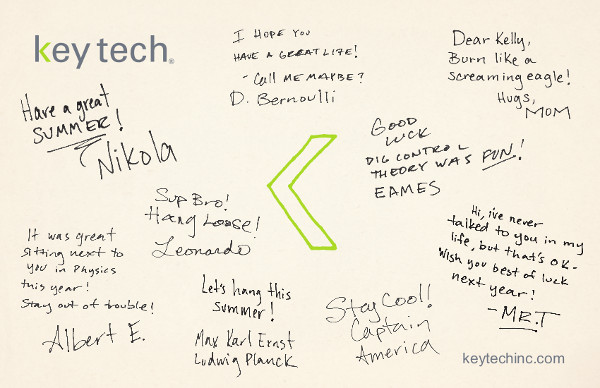 key tech®
I HOPE YOU
HAVE A GREAT LIFE!
- CALL ME MAYBE?
D. Bernoulli
Dear Kelly,
Burn like a
screaming eagle!
Hugs,
MOM
Have a great
SUMMER!
Nikola
GOOD
LUCK
DIG CONTROL
THEORY WAS FUN!
EAMES
Sup Bro!
Hang Loose!
Leonardo
Hi, i've never
talked to you in my
life, but that's OK-
Wish you best of luck
next year!
-MR.T
It was great
sitting next to
you in Physics
this year!
Stay out of trouble!
Albert E.
Let's hang this
summer!
Max Karl Ernst
Ludwig Planck
Stay Cool!
Captain
America
keytechinc.com